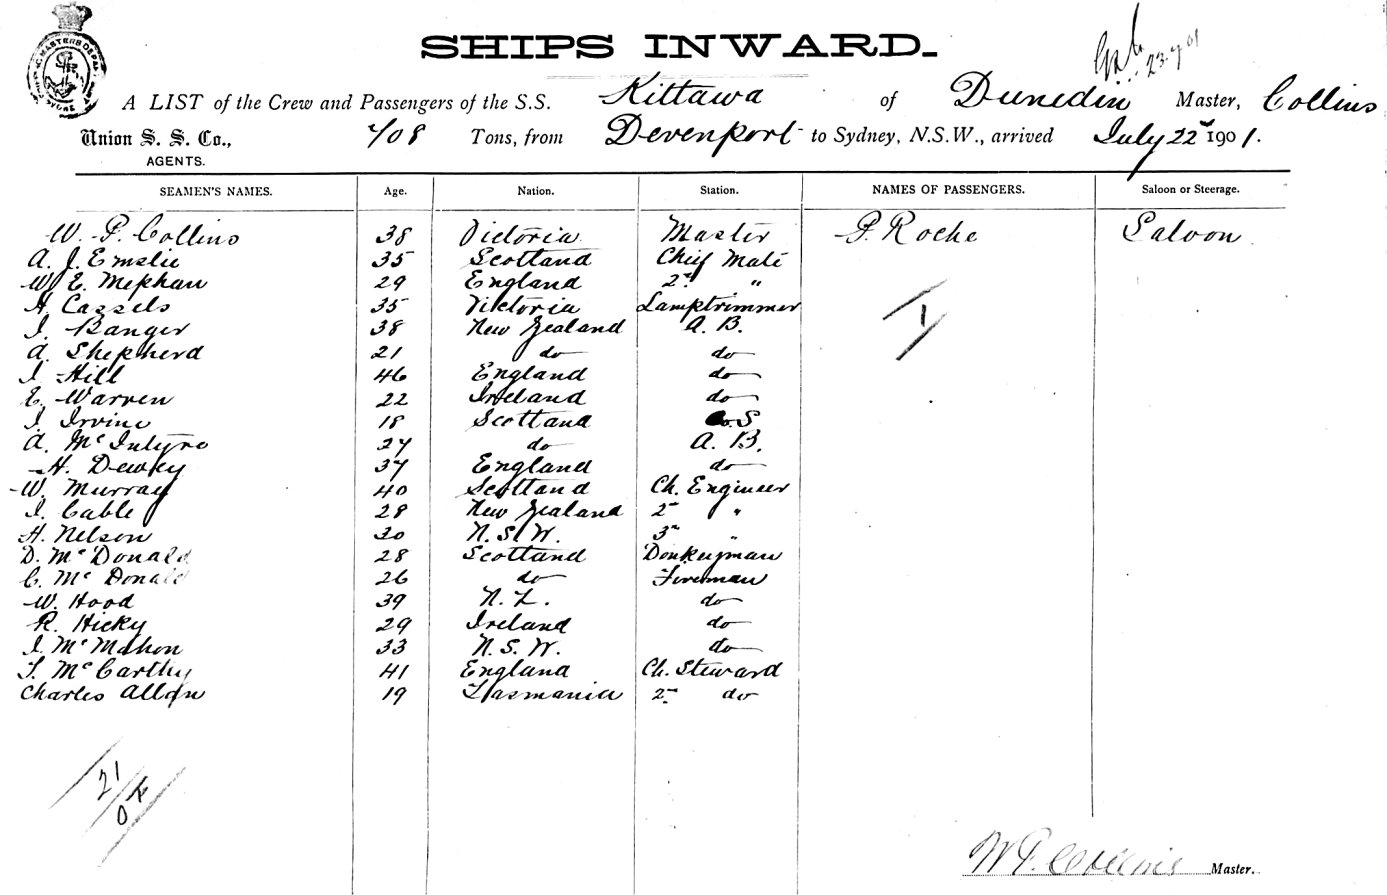 SHIPS INWARD.
23.7.01
A LIST of the Crew and Passengers of the S.S. Kittawa of Dunedin Master, Collins
Union S. S. Co., 708 Tons, from Devenport to Sydney, N.S.W., arrived July 22nd 1901.
AGENTS.
SEAMEN'S NAMES. Age. Nation. Station. NAMES OF PASSENGERS. Saloon or Steerage.
W. P. Collins 38 Victoria Master P. Roche Saloon
A. J. Emslie 35 Scotland Chief Mate
W. E. Mephan 29 England 2nd "
H. Cassels 35 Victoria Lamptrimmer
J. Banger 38 New Zealand A. B.
A. Shepherd 21 do do
J. Hill 46 England do
E. Warren 22 Ireland do
J. Irvine 18 Scotland O.S
A. McIntyre 27 do A. B.
H. Dewky 37 England do
W. Murray 40 Scotland Ch. Engineer
J. Cable 28 New Zealand 2nd "
H. Nelson 30 N.S.W. 3rd "
D. McDonald 28 Scotland Donkeyman
C. McDonald 26 do Fireman
W. Hood 39 N.Z. do
R. Hicky 29 Ireland do
J. McMahon 33 N.S.W. do
T. McCarthy 41 England Ch. Steward
Charles Allan 19 Tasmania 2nd do
1
21
W P Collins Master.